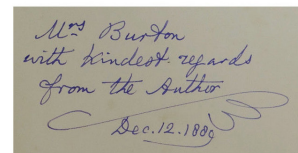 Mrs Burton
with kindest regards
from the Author
Dec. 12. 1889